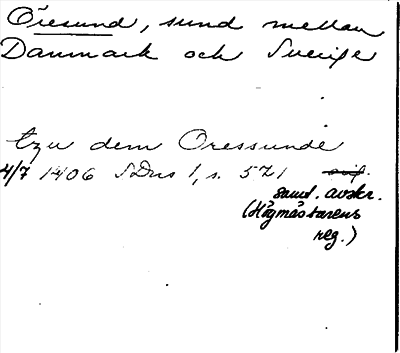 Öresund, sund mellan
Danmark och Sverige
tzu dem Oressunde
4/7 1406 SDns 1, s. 571
samt. avskr.
(Högmästarens
reg.)